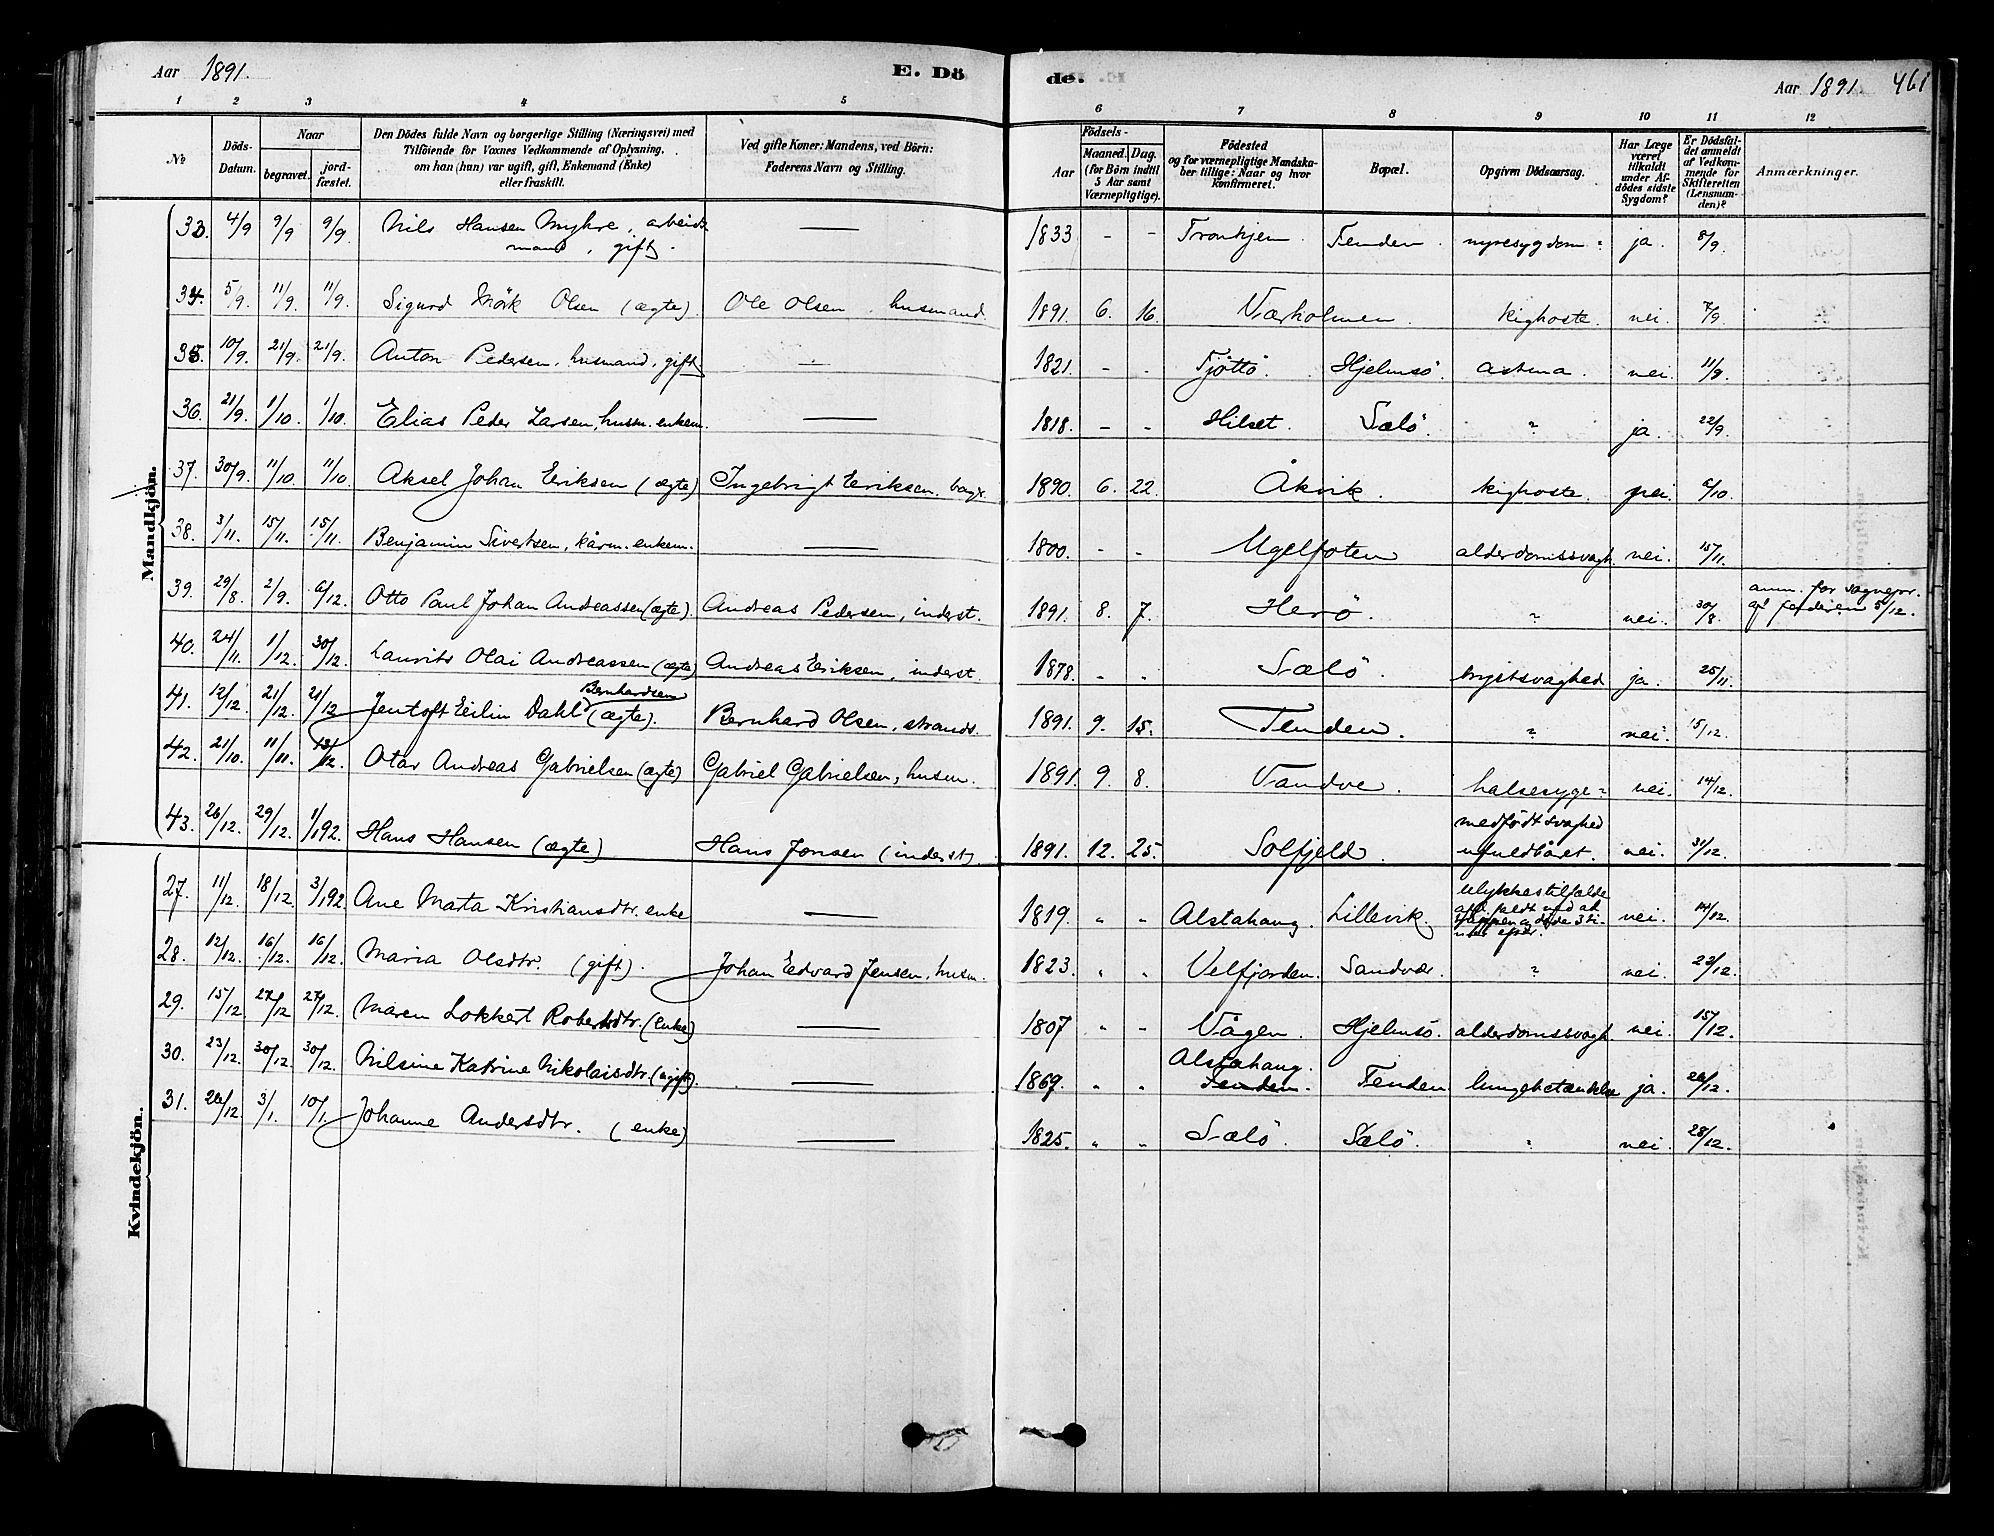 Aar 1891.
E. Dö
de.
Aar 1891.
461
1 2 3 4 5 6 7 8 9 10 11 12
No
Döds-Datum.
Naar
begravet.
jord-fæstet.
Den Dödes fulde Navn og borgerlige Stilling (Næringsvei) med
Tilföiende for Voxnes Vedkommende af Oplysning,
om han (hun) var ugift, gift, Enkemand (Enke)
eller fraskilt.
Ved gifte Koner: Mandens, ved Börn:
Faderens Navn og Stilling.
Födsels-
Aar
Maaned. Dag.
(for Börn indtil
5 Aar samt
Værnepligtige).
Födested
og for værnepligtige Mandska-
ber tillige: Naar og hvor
konfirmeret.
Bopæl.
Opgiven Dödsaarsag.
Har Læge
været
tilkaldt
under Af-
dödes sidste
Sygdom?
Er Dödsfal-
det anmeldt
af Vedkom-
mende for
Skifteretten
(Lensman-
den)?
Anmærkninger.
Mandkjön.
33. 4/9 9/9 9/9. Nils Hansen Myhre, arbeids
mand, gift. — 1833 - - Tronhjem. Tenden. nyresygdom. ja. 8/9.
34. 5/9. 11/9. 11/9. Sigurd Mörk Olsen (ægte). Ole Olsen, husmand 1891. 6. 16. Værholmen. kighoste. nei. 7/9.
35. 10/9. 21/9. 21/9. Anton Pedersen, husmand, gift — 1821. - - Tjöttö. Hjelmsö. astma. nei. 11/9.
36. 21/9. 1/10. 1/10. Elias Peder Larsen, husm. enkem. — 1818. - - Hilset. Sælö. " ja. 22/9.
37. 30/9. 11/10. 11/10. Aksel Johan Eriksen (ægte) Ingebrigt Eriksen. 1890. 6. 22. Åkvik. kighoste. nei. 6/10.
38. 3/11. 15/11. 15/11. Benjamin Sivertsen, kårm. enkem. — 1800. - - Ugelfoten alderdomssvagh. nei. 15/11.
39. 29/8. 2/9. 6/12. Otto Paul Johan Andreassen (ægte). Andreas Pedersen, inderst. 1891. 8. 7. Herö. " nei. 30/8. anm. for sognepr.
af faderen 5/12.
40. 24/11. 1/12. 30/12. Laurits Olai Andreassen (ægte) Andreas Eriksen, inderst. 1878. - - Sælö. brystsvaghed ja. 25/11.
41. 12/12. 21/12. 21/12 Jentoft Eilin Dahl Bernhardsen (ægte). Bernhard Olsen, strands. 1891. 9. 15. Tenden. " nei. 15/12.
42. 21/10. 11/11. 13/12. Otar Andreas Gabrielsen (ægte) Gabriel Gabrielsen, husm. 1891. 9. 8. Vandve. halsesyge nei. 14/12.
43. 26/12. 29/12. 1/1 92. Hans Hansen (ægte) Hans Jensen (inderst). 1891. 12. 25. Solfjeld. medfödt svaghed
ufuldbåret. nei. 31/12.
Kvindekjön.
27. 11/12. 18/12. 3/1 92. Ane Marta Kristiansdtr. enke — 1819. " " Alstahaug. Lillevik. ulykkestilfælde
nei. 14/12.
28. 12/12. 16/12. 16/12. Maria Olsdtr. (gift). Johan Edvard Jensen, husm. 1823. " " Velfjorden. Sandvær. " nei. 23/12.
29. 15/12. 27/12 27/12. Maren Lokkert Robertsdtr. (enke) — 1807 " " Vågen. Hjelmsö. alderdomssvagh. nei. 15/12.
30. 23/12. 30/12. 30/12. Nilsine Katrine Nikolaisdtr. (ugift). — 1869. " " Alstahaug.
Tenden. Tenden lungebetændelse ja. 26/12.
31. 26/12. 3/1. 10/1. Johanne Andersdtr. (enke) — 1825. " " Sælö. Sælö. " nei. 28/12.